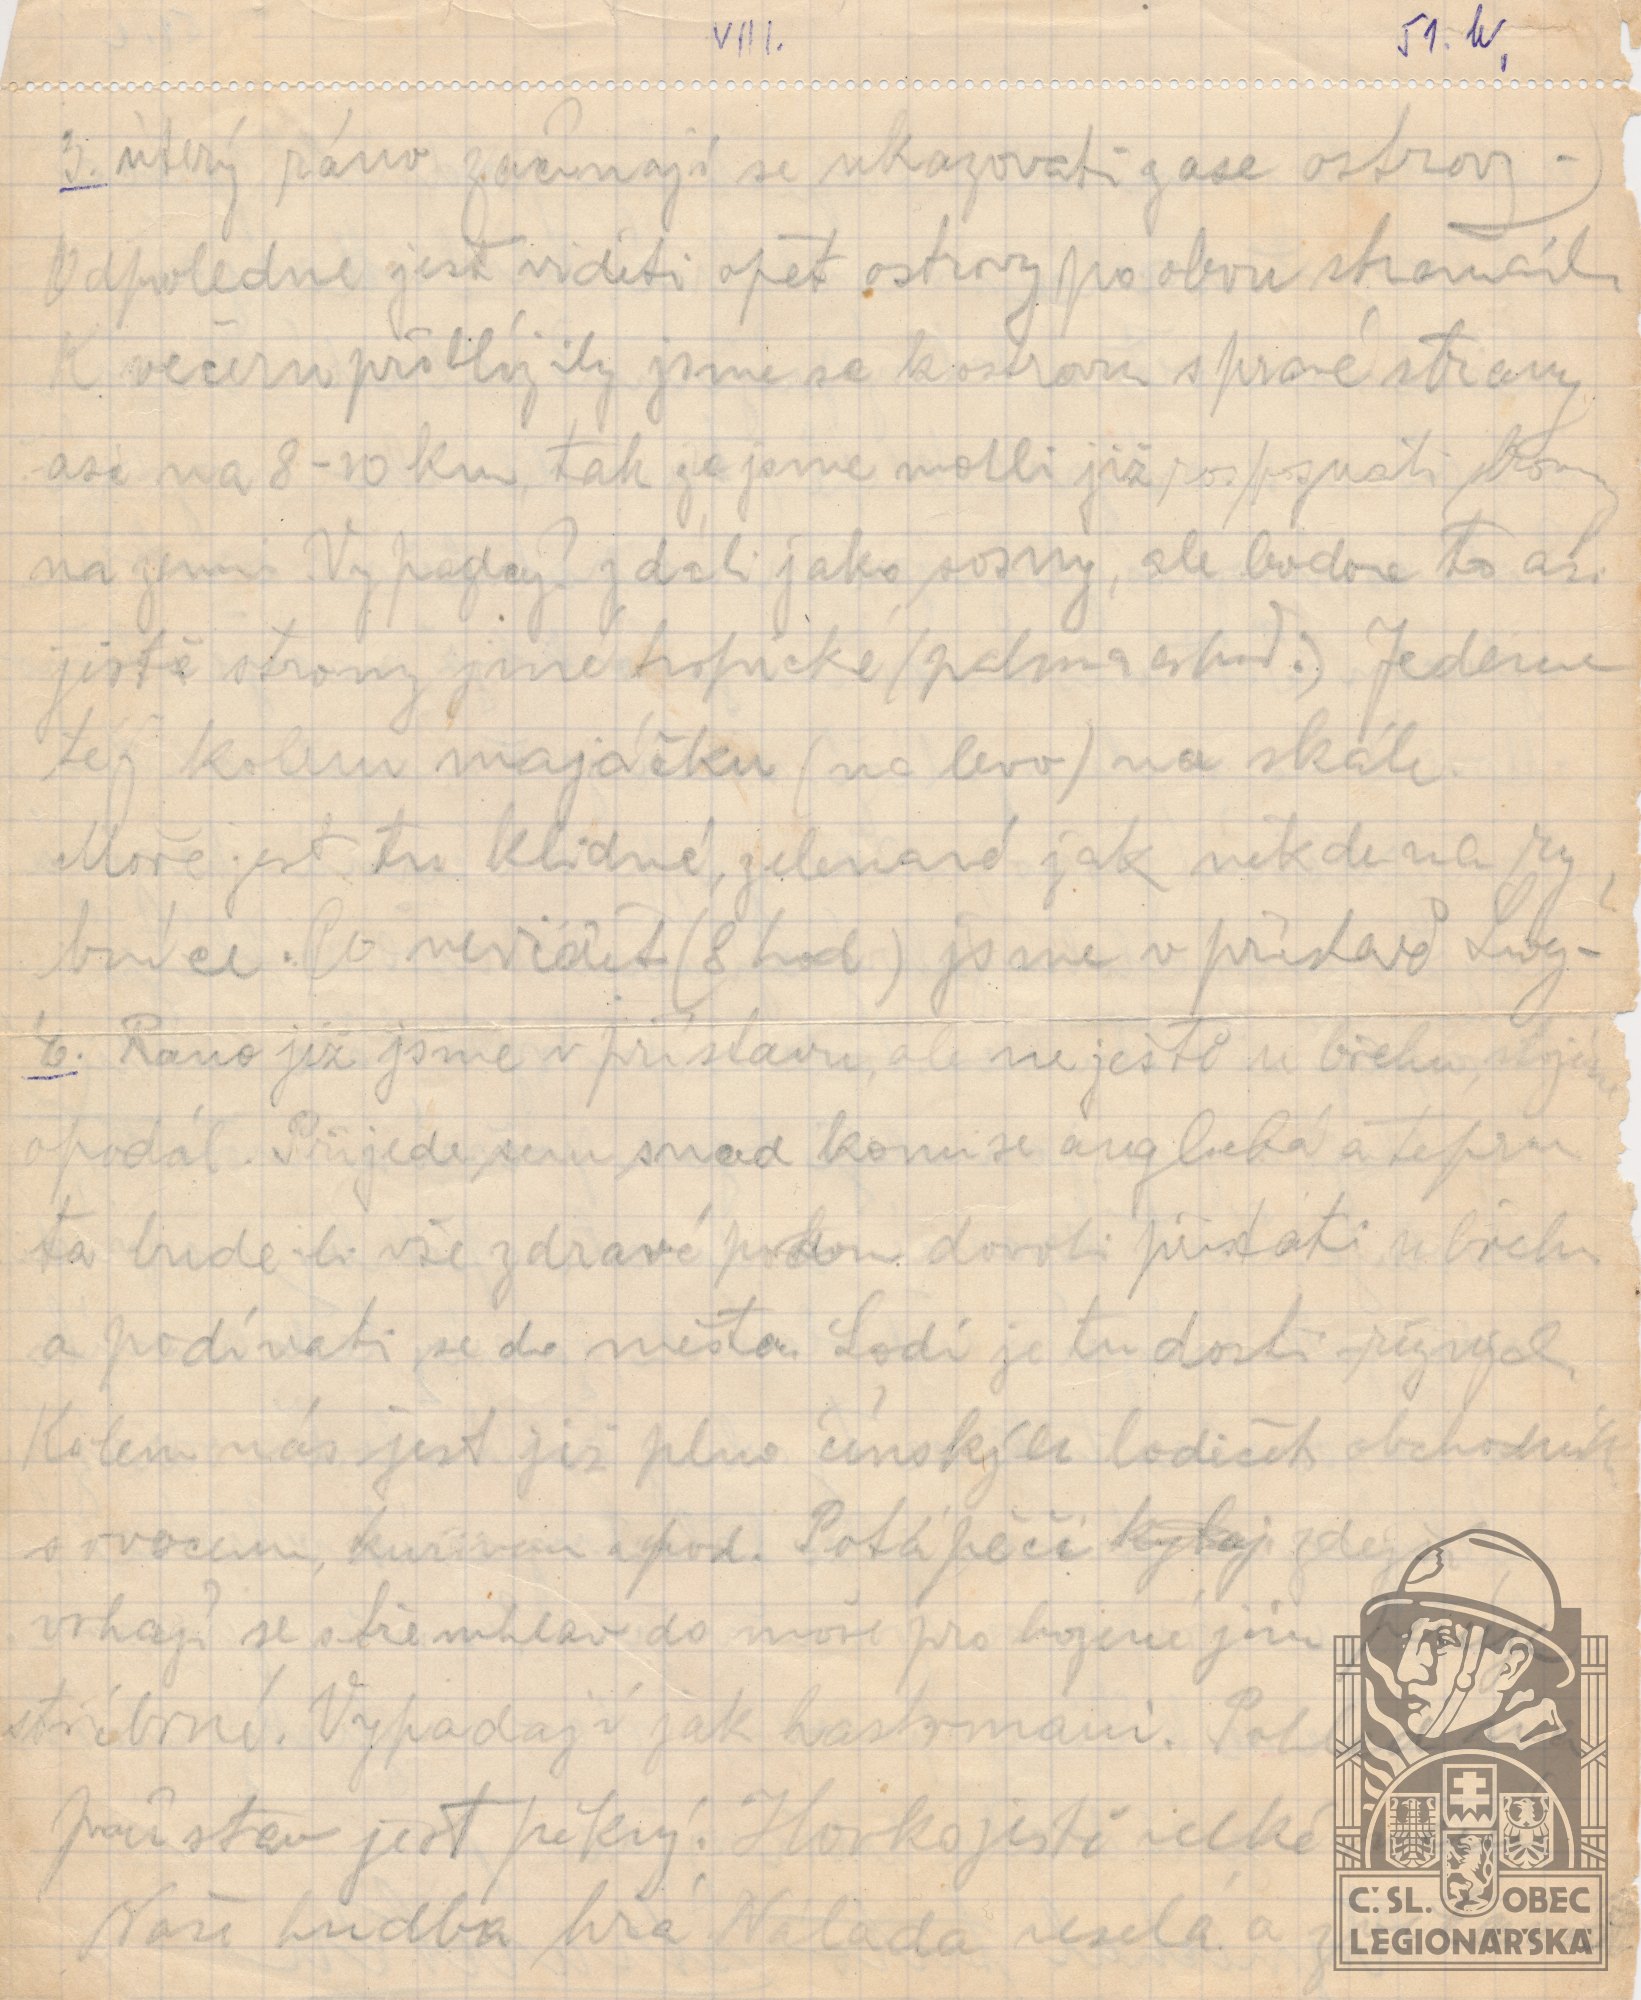 VIII. 51.
3. úterý ráno začínají se ukazovati zase ostrovy -
Odpoledne jest viděti opět ostrovy po obou stranách
K večeru přiblížily jsme se k ostrovu s pravé strany
asi na 8-10 km, tak že jsme mohli již rospoznati stromy
na zemi. Vypadají zdáli jako sosny, ale budou to asi
jistě stromy jiné tropické (palma a pod.) Jedeme
též kolem majáčku (na levo) na skále.
Moře jest tu klidné, zelenavé jak někde na ry
bníce. Co nevidět (8 hod) jsme v přístavě
4. Ráno již jsme v přístavu, ale ne ještě u břehu, stojíme
opodál. Přijede sem snad komise anglická a teprv
ta bude-li vše zdravé potom dovolí přistáti u břehu
a podívati se do města. Lodí je tu dosti různých
Kolem nás jest již plno čínských lodiček obchodníků
s ovocem, kuřivem a pod. Potápěči zdejší
vrhají se střemhlav do moře pro hozené jim
stříbrné. Vypadají jak hastrmani. Pohled na
přístav jest pěkný. Horko jistě velké
Naše hudba hrá Nálada veselá a
Č.SL. OBEC
LEGIONÁŘSKÁ